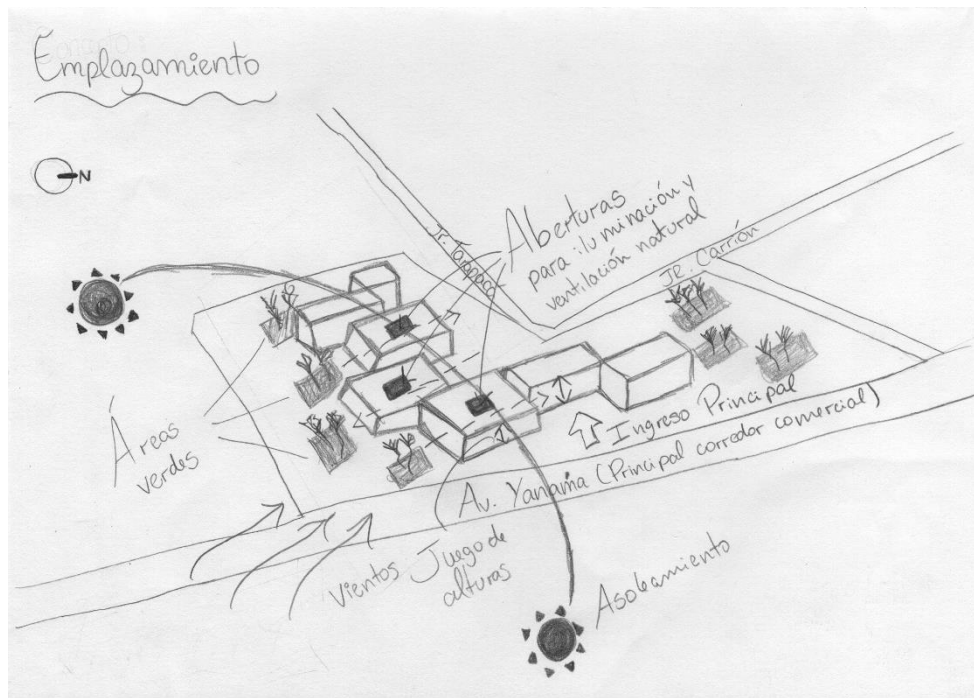 Emplazamiento
N
Jr. Tarapacá
Aberturas
para iluminación y
ventilación natural
Jr. Carrión
Áreas
verdes
Ingreso Principal
Av. Yanama (Principal corredor comercial)
Vientos
Juego de
alturas
Asoleamiento